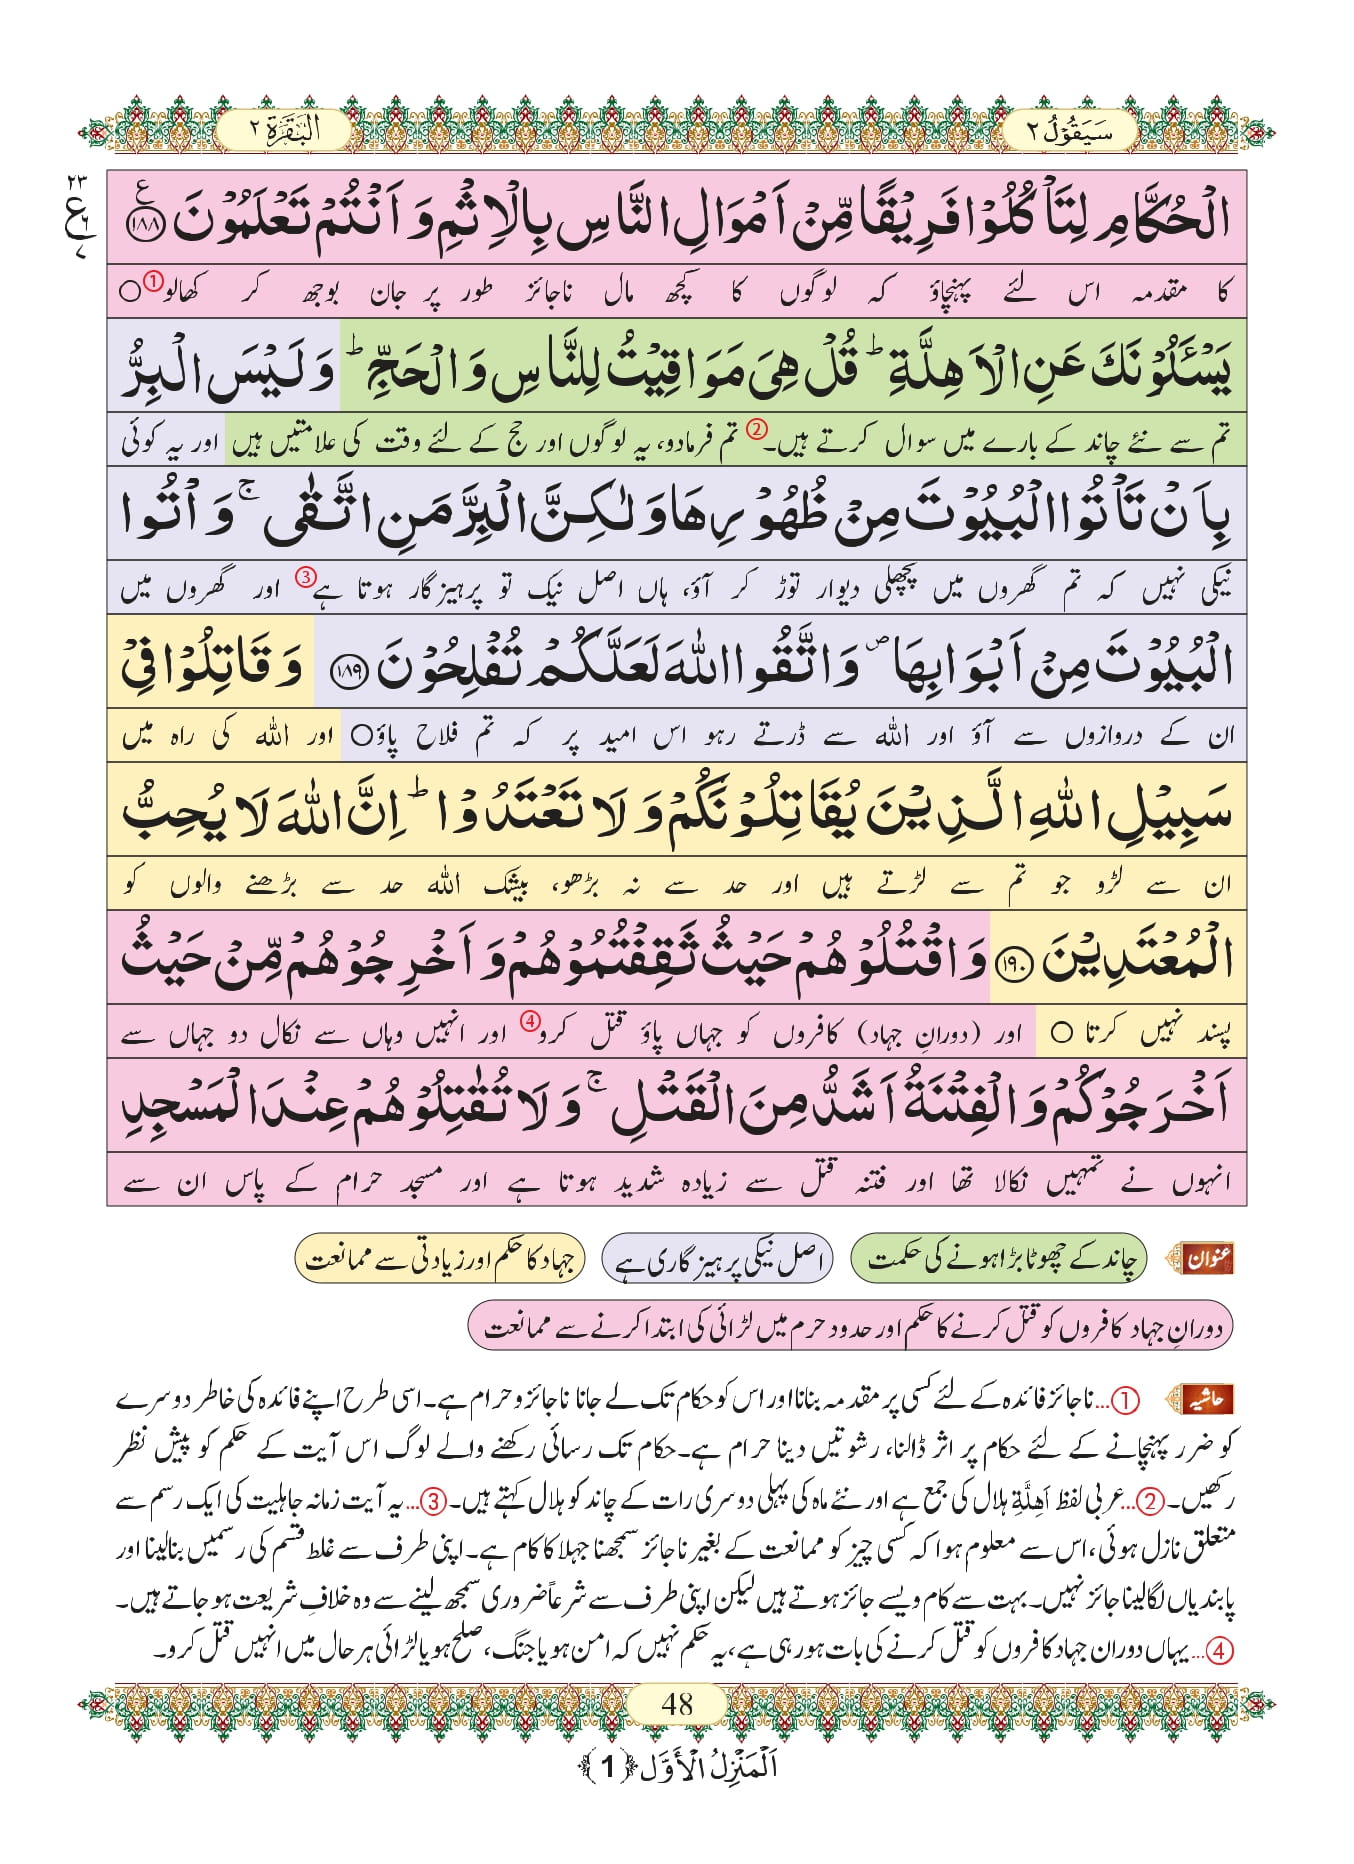 سَيَقُوۡلُ ٢
اَلۡبَقَرَة ٢
٢٣
ع
٦
٧
الۡحُكَّامِ لِتَاۡكُلُوۡا فَرِيۡقًا مِّنۡ اَمۡوَالِ النَّاسِ بِالۡاِثۡمِ وَاَنۡتُمۡ تَعۡلَمُوۡنَ ﴿١٨٨﴾ ع
کا مقدمہ اس لئے پہنچاؤ کہ لوگوں کا کچھ مال ناجائز طور پر جان بوجھ کر کھالو① ○
يَسۡـَٔلُوۡنَكَ عَنِ الۡاَهِلَّةِ ؕ قُلۡ هِىَ مَوَاقِيۡتُ لِلنَّاسِ وَالۡحَجِّ ؕ وَلَيۡسَ الۡبِرُّ
تم سے نئے چاند کے بارے میں سوال کرتے ہیں۔② تم فرمادو، یہ لوگوں اور حج کے لئے وقت کی علامتیں ہیں اور یہ کوئی
بِاَنۡ تَاۡتُوا الۡبُيُوۡتَ مِنۡ ظُهُوۡرِهَا وَلٰكِنَّ الۡبِرَّ مَنِ اتَّقٰى ۚ وَاۡتُوا
نیکی نہیں کہ تم گھروں میں پچھلی دیوار توڑ کر آؤ، ہاں اصل نیک تو پرہیزگار ہوتا ہے③ اور گھروں میں
الۡبُيُوۡتَ مِنۡ اَبۡوَابِهَا ص وَاتَّقُوا اللّٰهَ لَعَلَّكُمۡ تُفۡلِحُوۡنَ ﴿١٨٩﴾ وَقَاتِلُوۡا فِىۡ
ان کے دروازوں سے آؤ اور اللہ سے ڈرتے رہو اس امید پر کہ تم فلاح پاؤ○ اور اللہ کی راہ میں
سَبِيۡلِ اللّٰهِ الَّذِيۡنَ يُقَاتِلُوۡنَكُمۡ وَلَا تَعۡتَدُوۡا ؕ اِنَّ اللّٰهَ لَا يُحِبُّ
ان سے لڑو جو تم سے لڑتے ہیں اور حد سے نہ بڑھو، بیشک اللہ حد سے بڑھنے والوں کو
الۡمُعۡتَدِيۡنَ ﴿١٩٠﴾ وَاقۡتُلُوۡهُمۡ حَيۡثُ ثَقِفۡتُمُوۡهُمۡ وَاَخۡرِجُوۡهُمۡ مِّنۡ حَيۡثُ
پسند نہیں کرتا ○ اور (دورانِ جہاد) کافروں کو جہاں پاؤ قتل کرو④ اور انہیں وہاں سے نکال دو جہاں سے
اَخۡرَجُوۡكُمۡ وَالۡفِتۡنَةُ اَشَدُّ مِنَ الۡقَتۡلِ ۚ وَلَا تُقٰتِلُوۡهُمۡ عِنۡدَ الۡمَسۡجِدِ
انہوں نے تمہیں نکالا تھا اور فتنہ قتل سے زیادہ شدید ہوتا ہے اور مسجد حرام کے پاس ان سے
عنوان چاند کے چھوٹا بڑا ہونے کی حکمت اصل نیکی پرہیزگاری ہے جہاد کا حکم اور زیادتی سے ممانعت
دورانِ جہاد کافروں کو قتل کرنے کا حکم اور حدود حرم میں لڑائی کی ابتدا کرنے سے ممانعت
حاشیہ ①...ناجائز فائدہ کے لئے کسی پر مقدمہ بنانا اور اس کو حکام تک لے جانا ناجائز و حرام ہے۔ اسی طرح اپنے فائدہ کی خاطر دوسرے
کو ضرر پہنچانے کے لئے حکام پر اثر ڈالنا، رشوتیں دینا حرام ہے۔ حکام تک رسائی رکھنے والے لوگ اس آیت کے حکم کو پیش نظر
رکھیں۔ ②...عربی لفظ اَهِلَّةِ ہلال کی جمع ہے اور نئے ماہ کی پہلی دوسری رات کے چاند کو ہلال کہتے ہیں۔ ③...یہ آیت زمانہ جاہلیت کی ایک رسم سے
متعلق نازل ہوئی، اس سے معلوم ہوا کہ کسی چیز کو ممانعت کے بغیر ناجائز سمجھنا جہلا کا کام ہے۔ اپنی طرف سے غلط قسم کی رسمیں بنالینا اور
پابندیاں لگالینا جائز نہیں۔ بہت سے کام ویسے جائز ہوتے ہیں لیکن اپنی طرف سے شرعاً ضروری سمجھ لینے سے وہ خلافِ شریعت ہو جاتے ہیں۔
④...یہاں دوران جہاد کافروں کو قتل کرنے کی بات ہو رہی ہے، یہ حکم نہیں کہ امن ہو یا جنگ، صلح ہو یا لڑائی ہر حال میں انہیں قتل کرو۔
48
اَلۡمَنۡزِلُ الۡاَوَّل ﴿1﴾